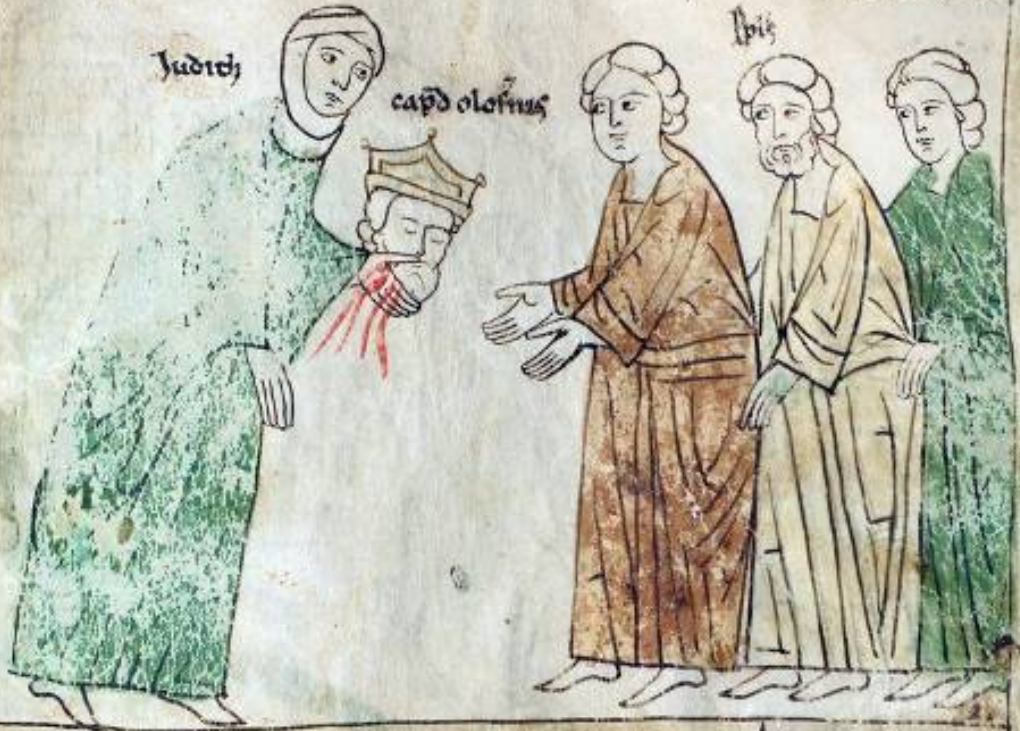 Judith
cap̄d olof̄nis